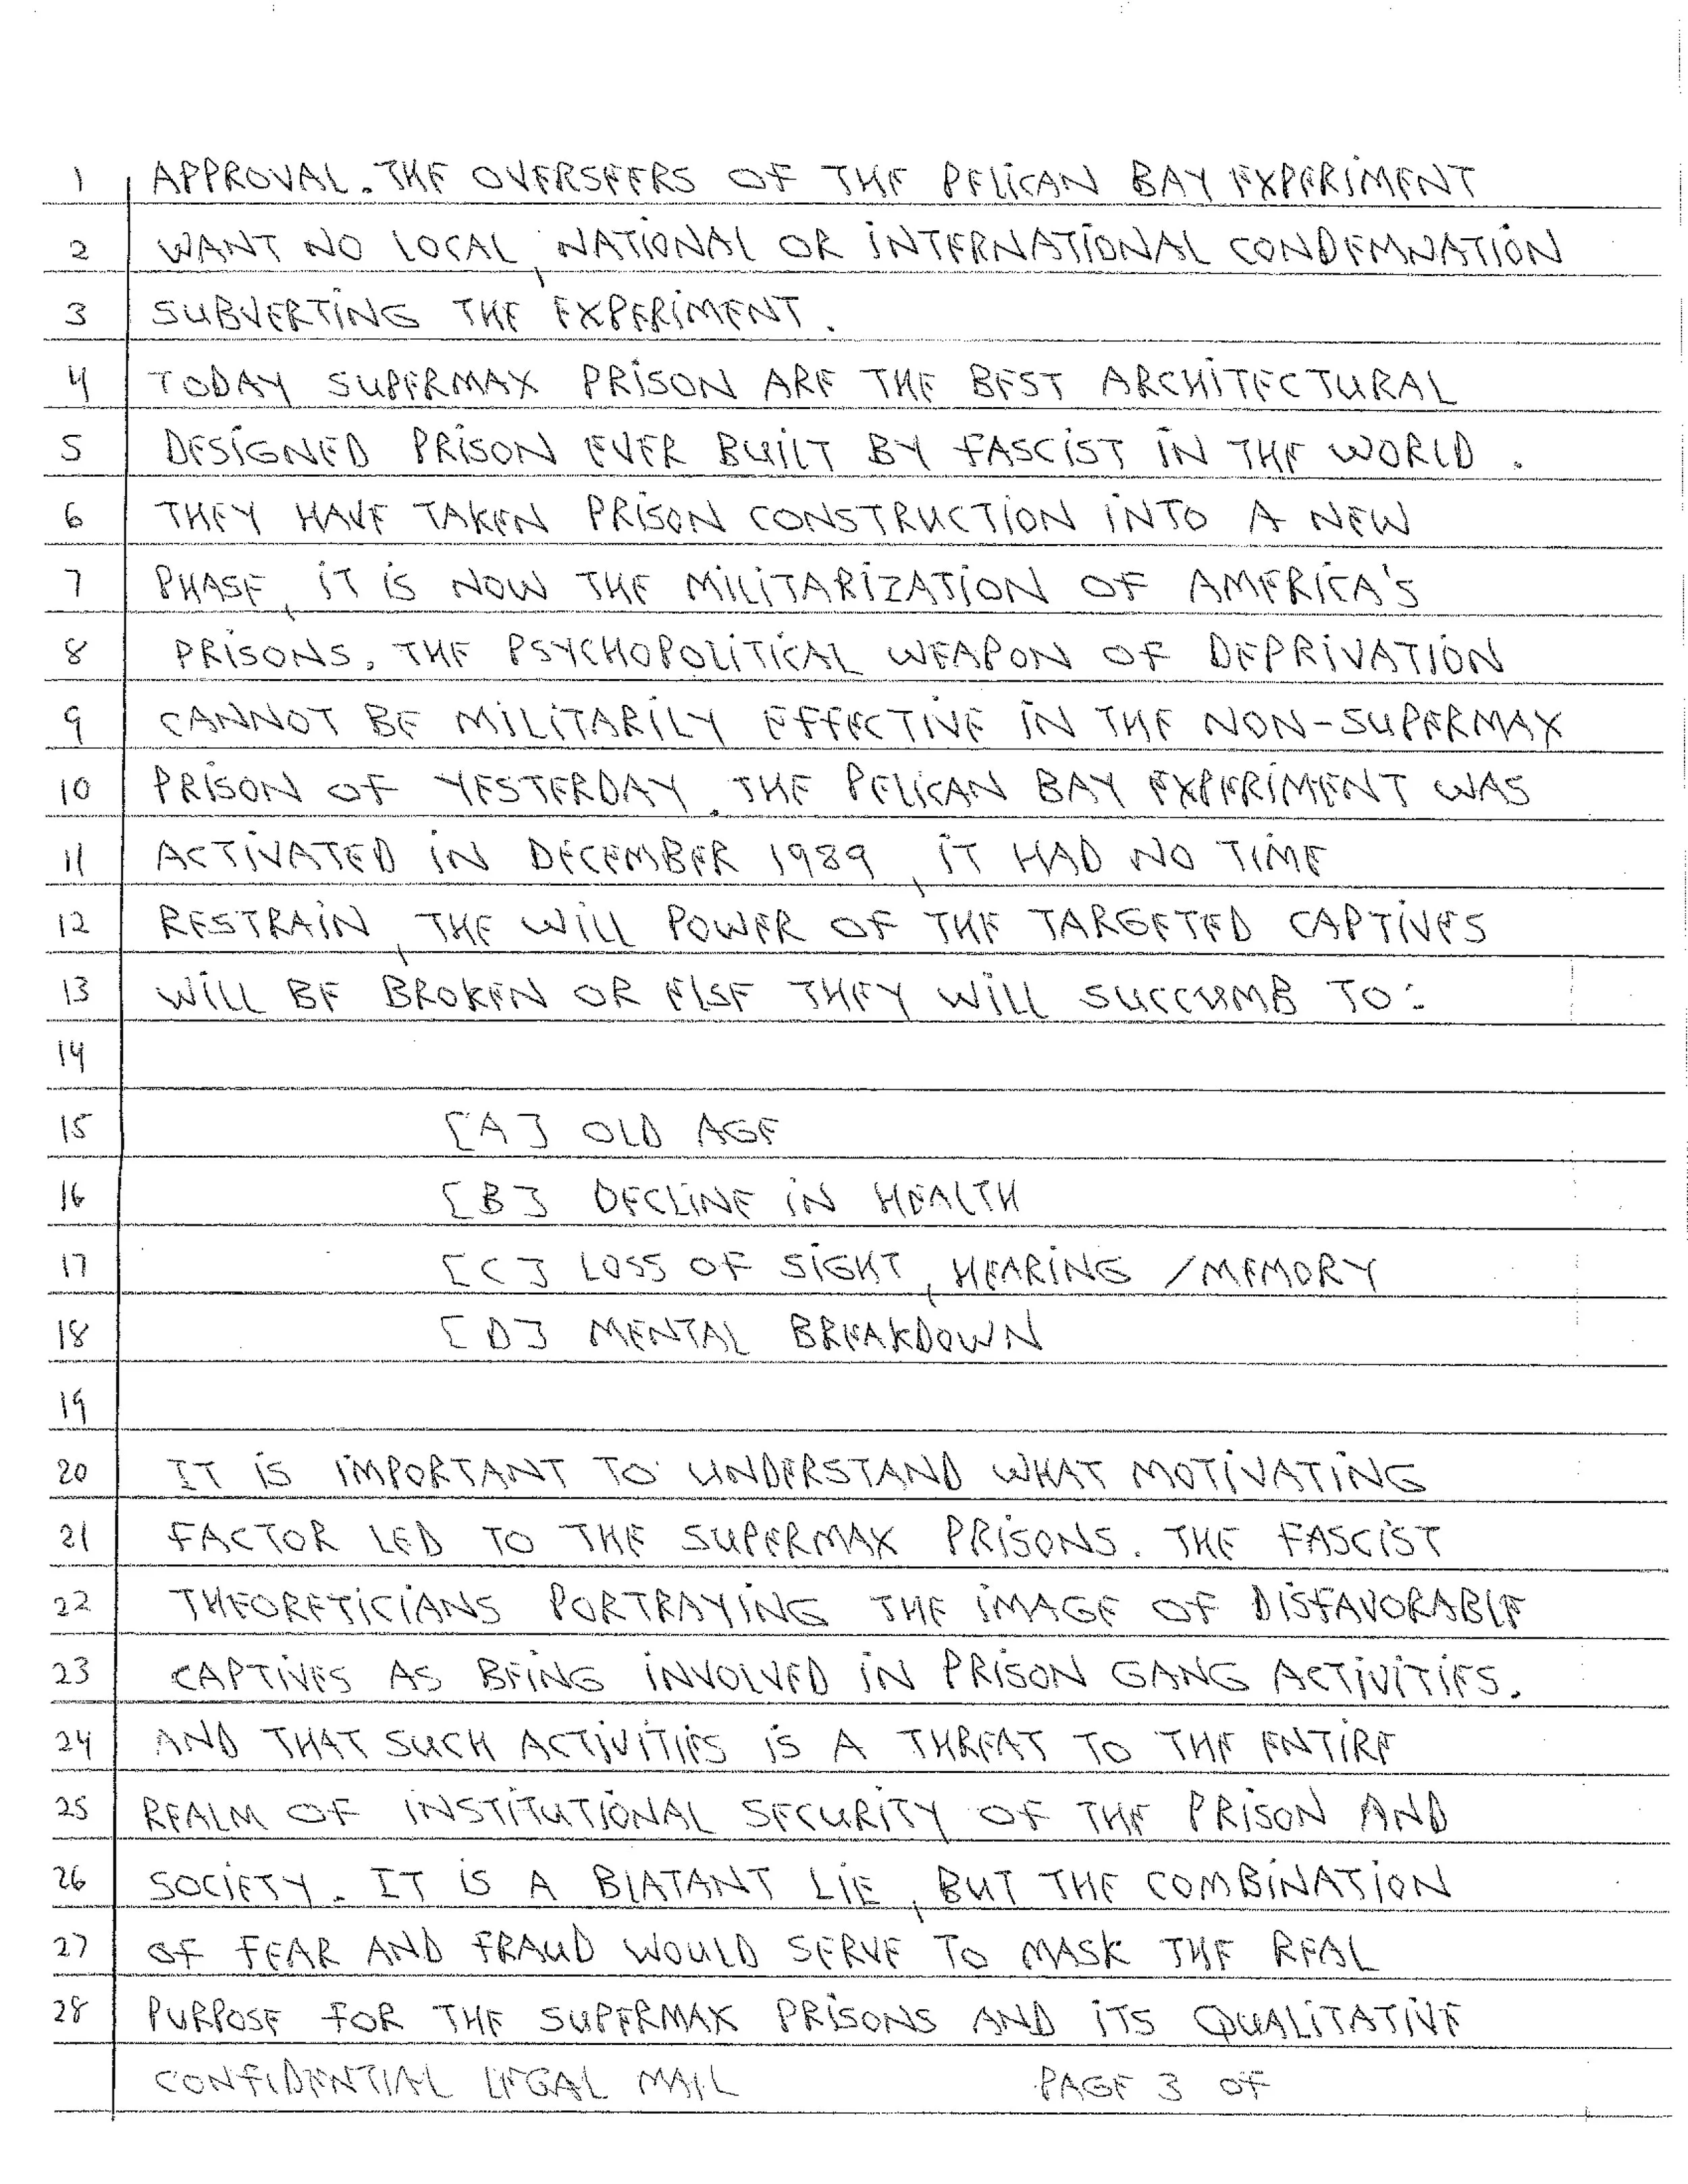 1 APPROVAL. THE OVERSEERS OF THE PELICAN BAY EXPERIMENT
2 WANT NO LOCAL, NATIONAL OR INTERNATIONAL CONDEMNATION
3 SUBVERTING THE EXPERIMENT.
4 TODAY SUPERMAX PRISON ARE THE BEST ARCHITECTURAL
5 DESIGNED PRISON EVER BUILT BY FASCIST IN THE WORLD.
6 THEY HAVE TAKEN PRISON CONSTRUCTION INTO A NEW
7 PHASE, IT IS NOW THE MILITARIZATION OF AMERICA'S
8 PRISONS. THE PSYCHOPOLITICAL WEAPON OF DEPRIVATION
9 CANNOT BE MILITARILY EFFECTIVE IN THE NON-SUPERMAX
10 PRISON OF YESTERDAY. THE PELICAN BAY EXPERIMENT WAS
11 ACTIVATED IN DECEMBER 1989, IT HAD NO TIME
12 RESTRAIN, THE WILL POWER OF THE TARGETED CAPTIVES
13 WILL BE BROKEN OR ELSE THEY WILL SUCCUMB TO:
14
15 [A] OLD AGE
16 [B] DECLINE IN HEALTH
17 [C] LOSS OF SIGHT, HEARING /MEMORY
18 [D] MENTAL BREAKDOWN
19
20 IT IS IMPORTANT TO UNDERSTAND WHAT MOTIVATING
21 FACTOR LED TO THE SUPERMAX PRISONS. THE FASCIST
22 THEORETICIANS PORTRAYING THE IMAGE OF DISFAVORABLE
23 CAPTIVES AS BEING INVOLVED IN PRISON GANG ACTIVITIES.
24 AND THAT SUCH ACTIVITIES IS A THREAT TO THE ENTIRE
25 REALM OF INSTITUTIONAL SECURITY OF THE PRISON AND
26 SOCIETY. IT IS A BLATANT LIE, BUT THE COMBINATION
27 OF FEAR AND FRAUD WOULD SERVE TO MASK THE REAL
28 PURPOSE FOR THE SUPERMAX PRISONS AND ITS QUALITATIVE
CONFIDENTIAL LEGAL MAIL PAGE 3 OF